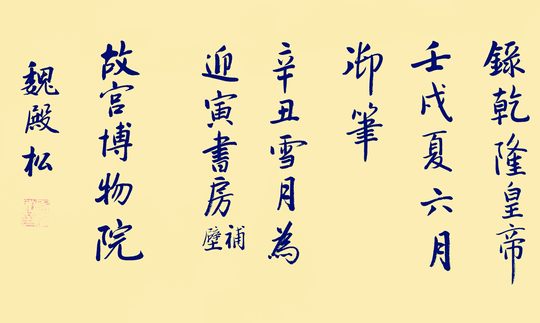 錄乾隆皇帝
壬戌夏六月
御筆
辛丑雪月為
迎寅書房補壁
故宮博物院
魏殿松